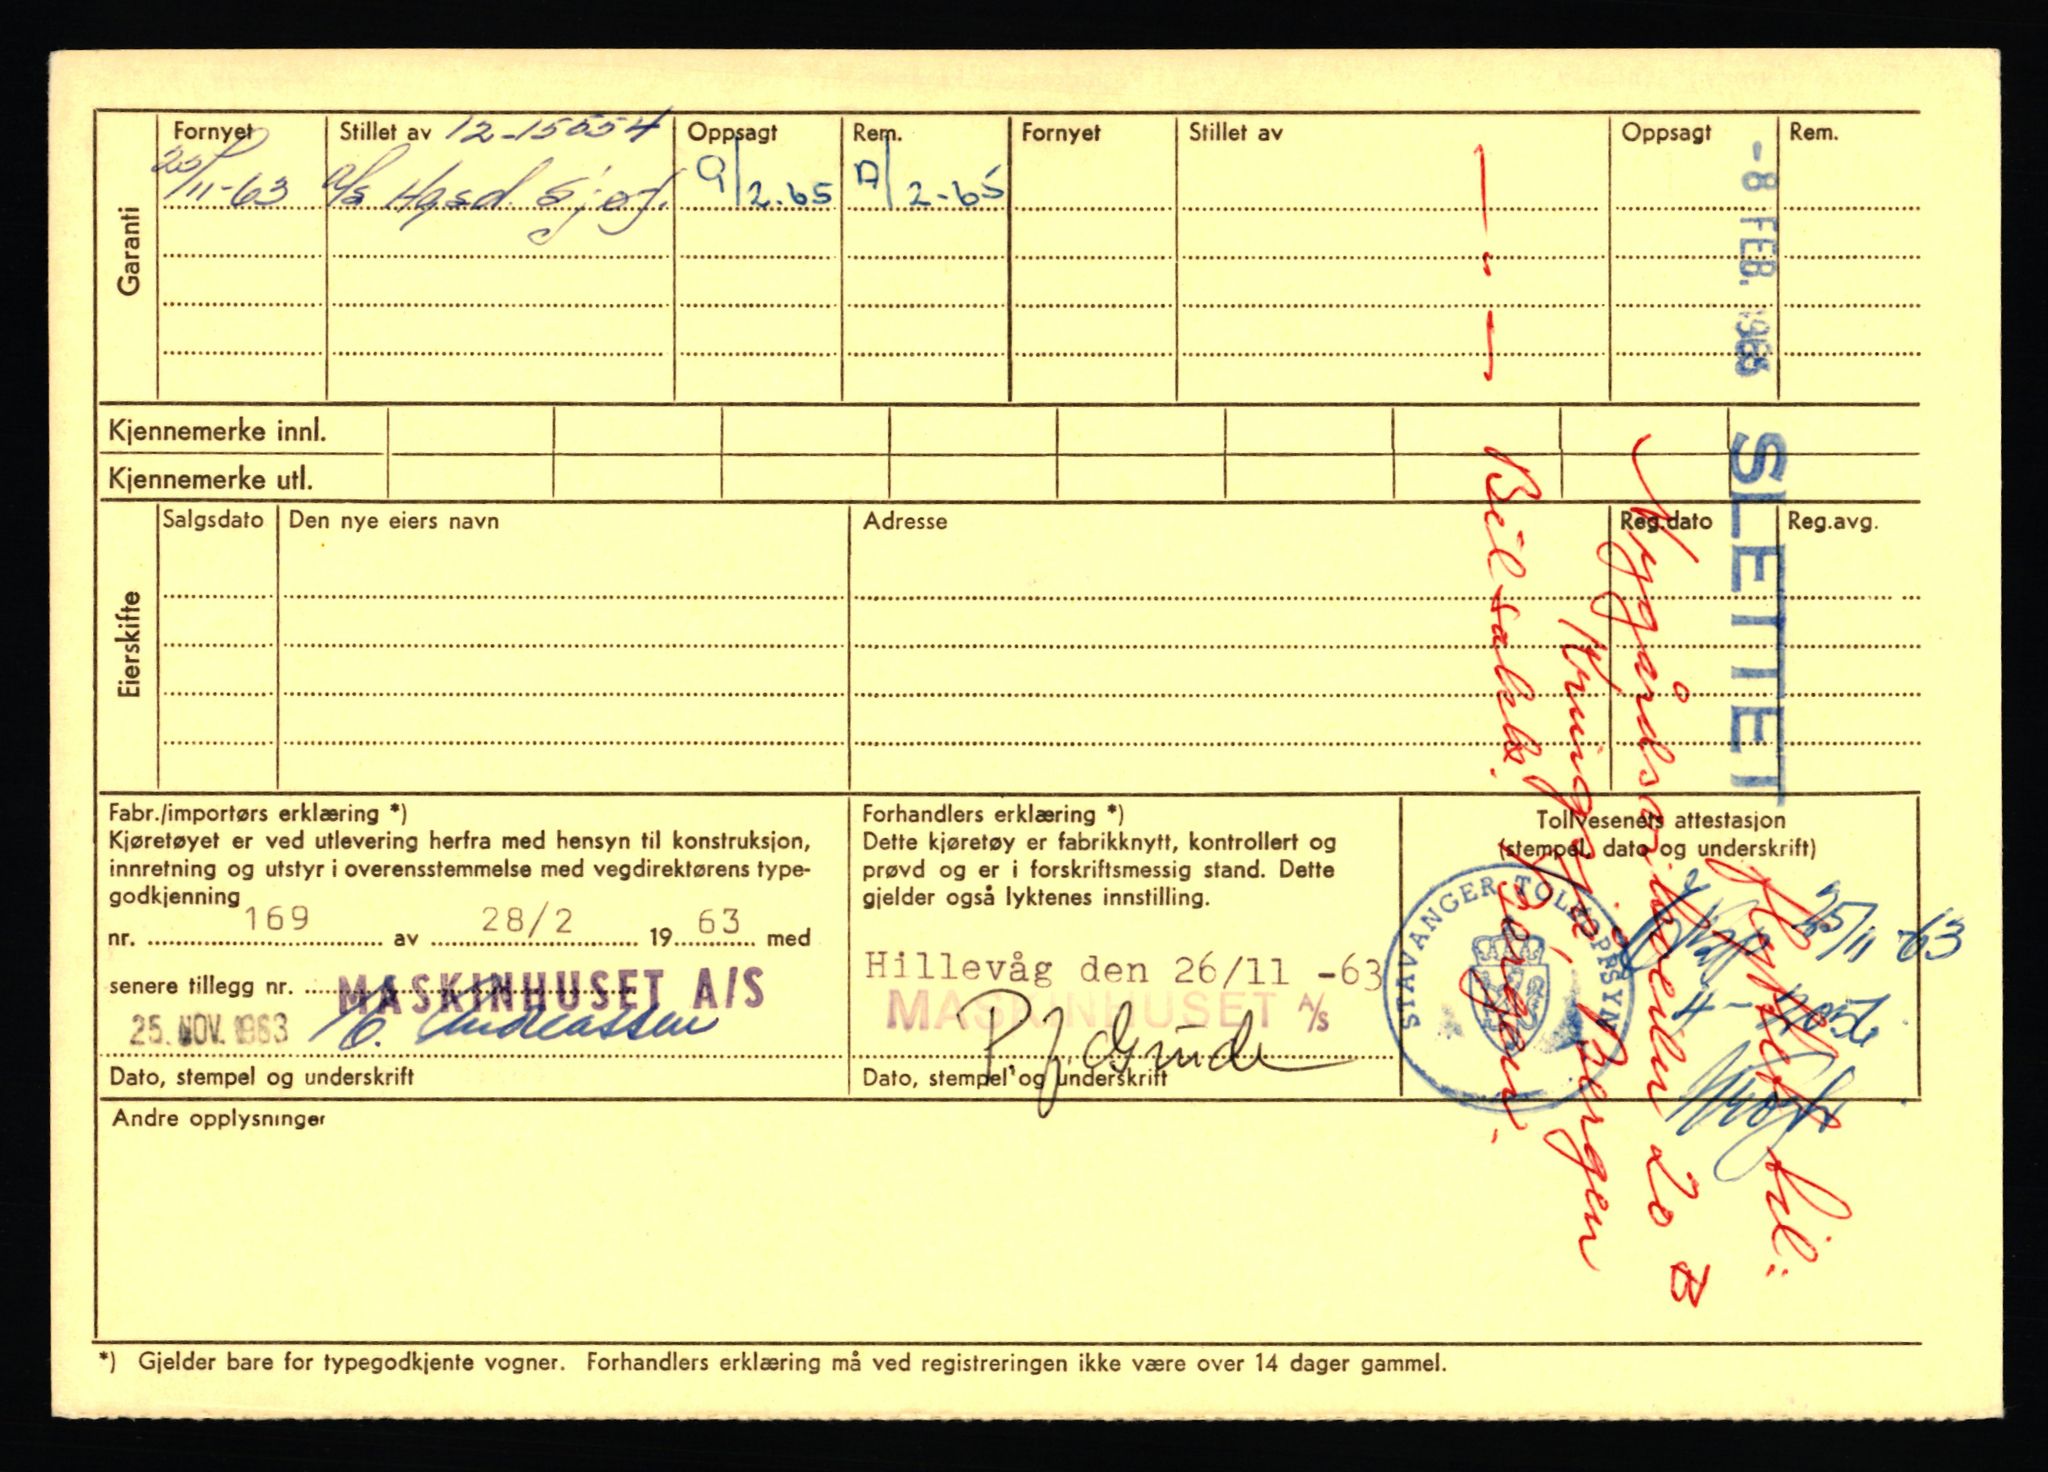 Garanti
Fornyet Stillet av 12-15554 Oppsagt Rem. Fornyet Stillet av Oppsagt Rem.
25/11-63 A/S Hgsd. Sjøf. 9/2-65 A/2-65
- 8 FEB. 1965
SLETTET
Kjennemerke innl.
Kjennemerke utl.
Eierskifte
Salgsdato Den nye eiers navn Adresse Reg.dato Reg.avg.
Flyttet til:
Nygårdsgaten 20 B
Bergen
Beil
Bergen.
Fabr./importørs erklæring *)
Kjøretøyet er ved utlevering herfra med hensyn til konstruksjon,
innretning og utstyr i overensstemmelse med vegdirektørens type-
godkjenning
nr. 169 av 28/2 19 63 med
senere tillegg nr.
MASKINHUSET A/S
25. NOV. 1963 E. Andreassen
Dato, stempel og underskrift
Forhandlers erklæring *)
Dette kjøretøy er fabrikknytt, kontrollert og
prøvd og er i forskriftsmessig stand. Dette
gjelder også lyktenes innstilling.
Hillevåg den 26/11 -63
MASKINHUSET A/S
P. J. Grude
Dato, stempel og underskrift
Tollvesenets attestasjon
(stempel, dato og underskrift)
STAVANGER TOLLOPPSYN
25/11-63
Andre opplysninger
*) Gjelder bare for typegodkjente vogner. Forhandlers erklæring må ved registreringen ikke være over 14 dager gammel.